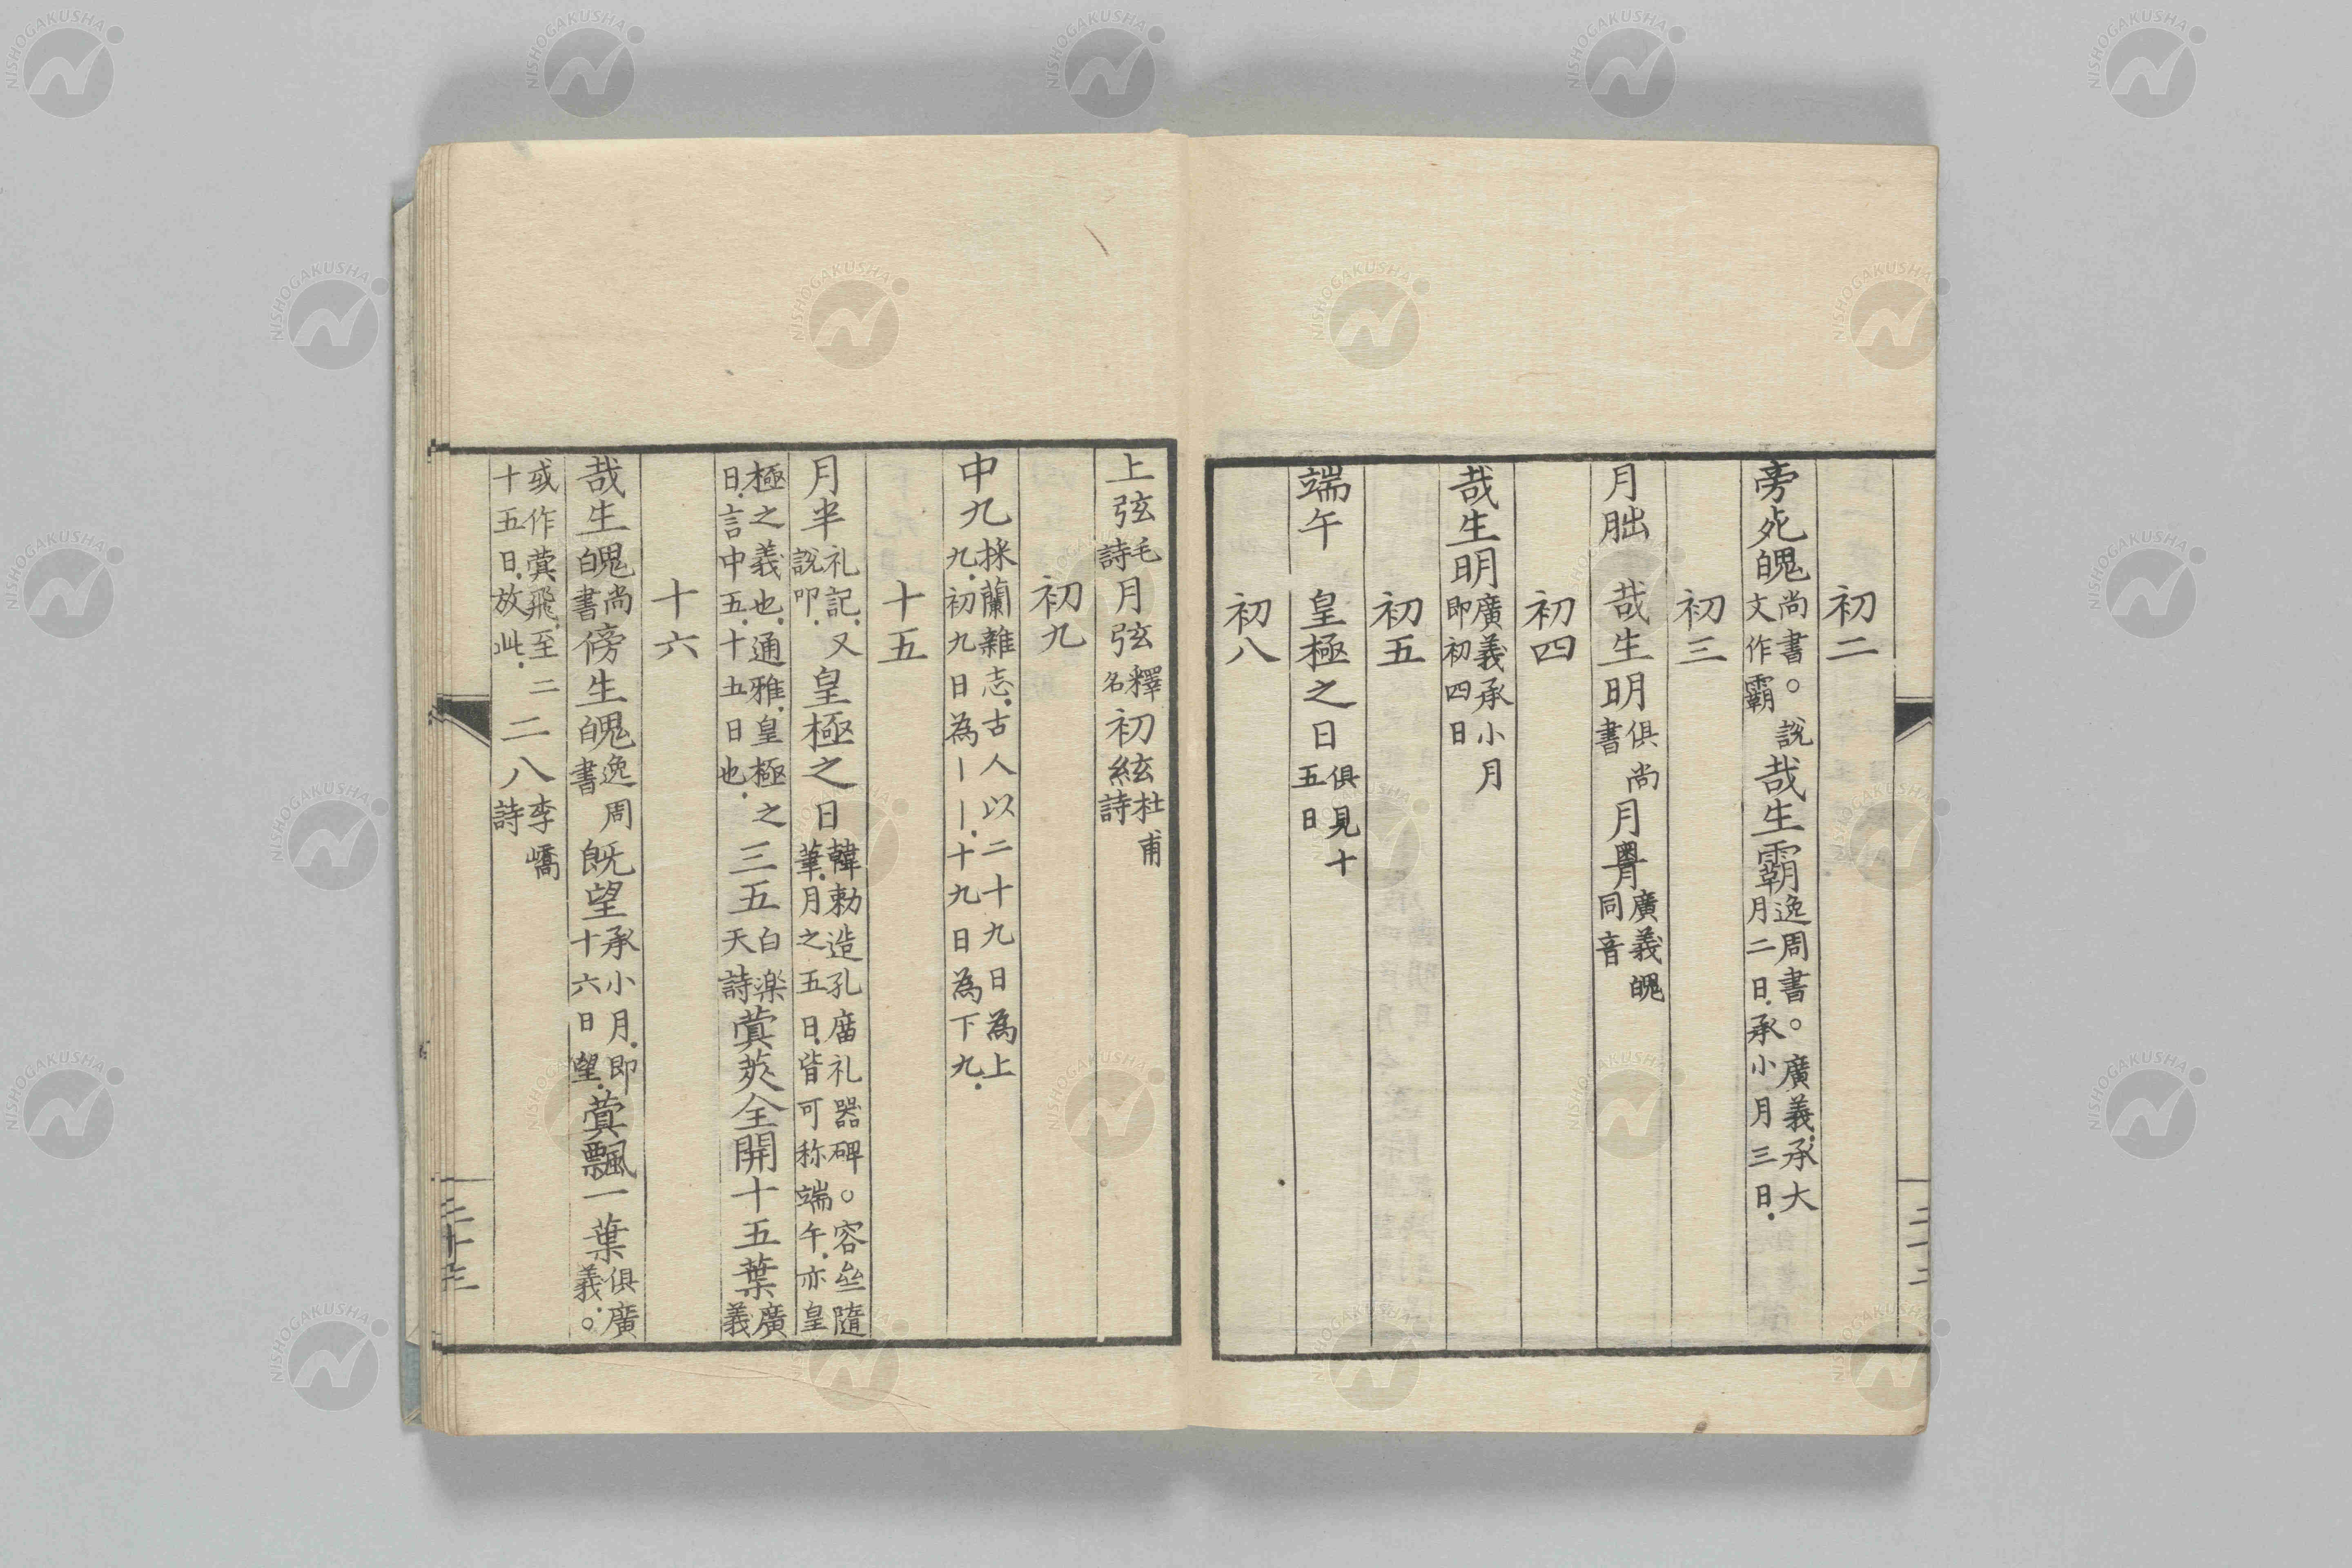 初二
旁死魄尚書。說文作霸哉生霸逸周書。廣義承大月二日承小月三日
初三
月朏 哉生明俱尚書月䏿廣義魄同音
初四
哉生明廣義承小月即初四日
初五
端午 皇極之日俱見十五日
初八
二十二
上弦毛詩月弦釋名初絃杜甫詩
初九
中九採蘭雜志古人以二十九日為上九初九日為丨丨十九日為下九
十五
月半礼記又說叩皇極之日韓勅造孔廟礼器碑。容垒隨筆月之五日皆可称端午亦皇
極之義也通雅皇極之日言中五十五日也三五白楽天詩蓂莢全開十五葉廣義
十六
哉生魄尚書傍生魄逸周書既望承小月即十六日望蓂飄一葉俱廣義。
或作蓂飛至二十五日放此二八李嶠詩
二十三
NISHOGAKUSHA